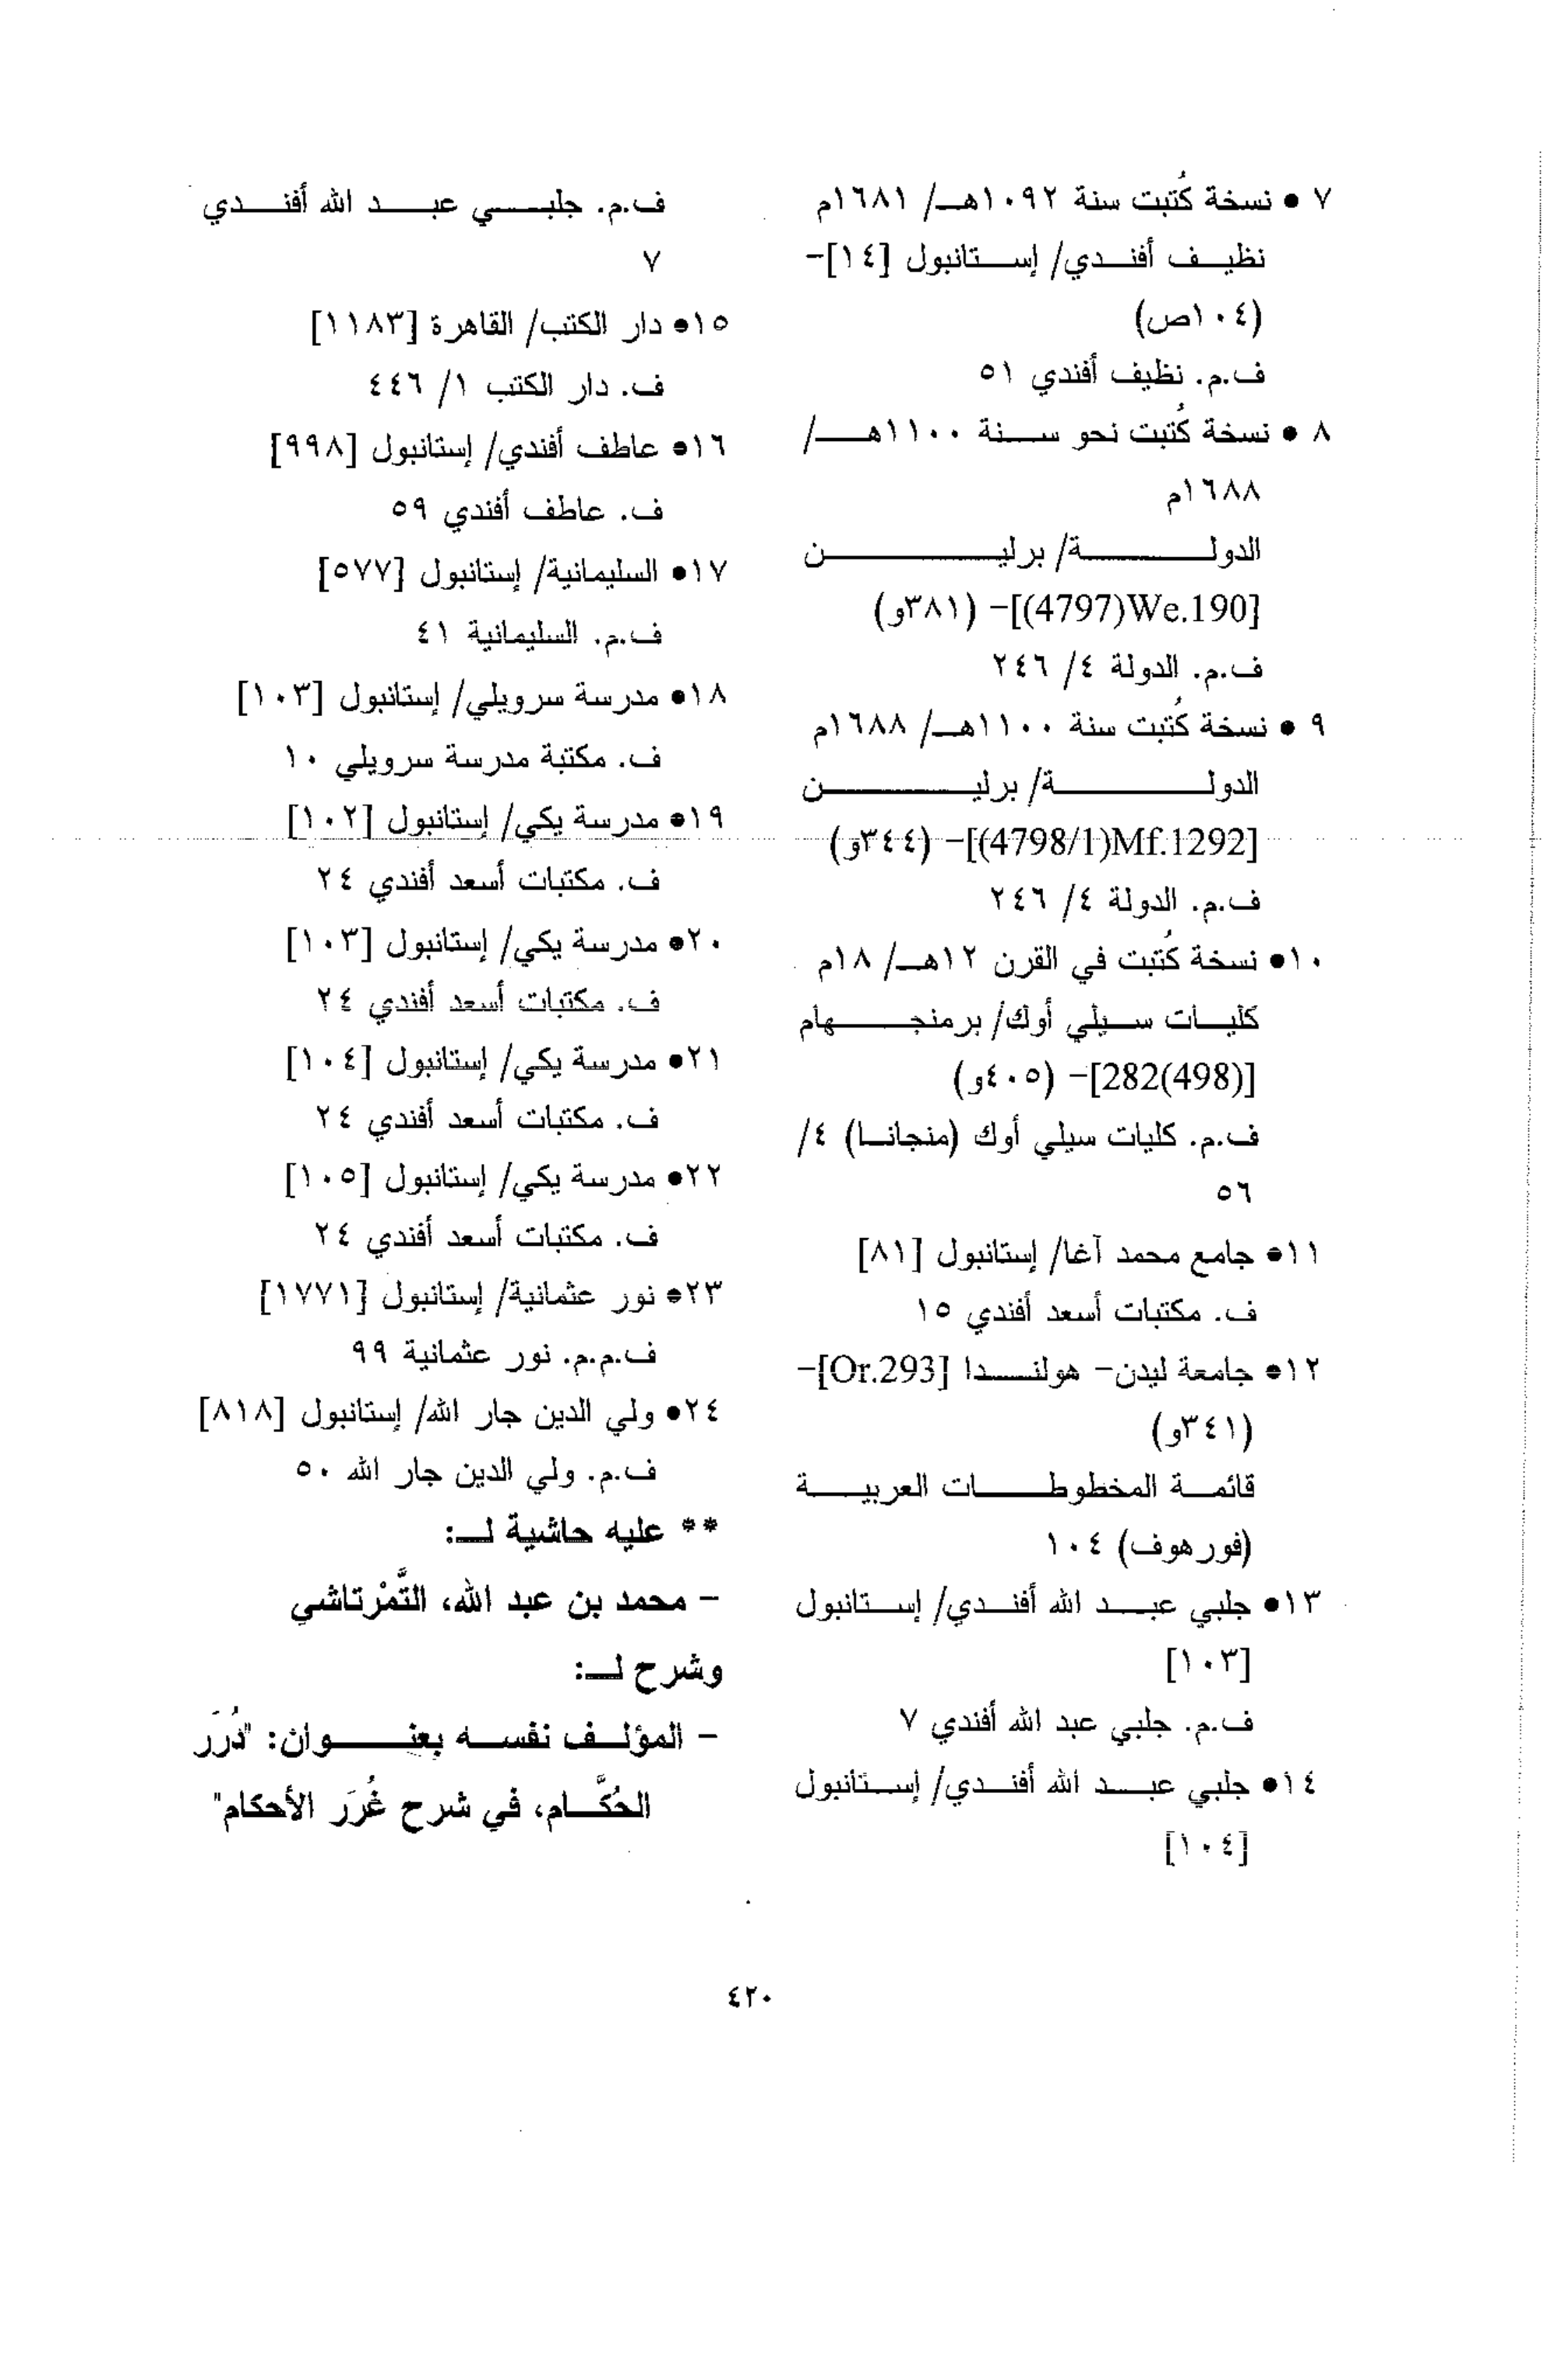 ٧ • نسخة كُتبت سنة ١٠٩٢هـ/ ١٦٨١م
نظيف أفندي/ إستانبول [١٤]-
(١٠٤ص)
ف.م. نظيف أفندي ٥١
٨ • نسخة كُتبت نحو سنة ١١٠٠هـ/
١٦٨٨م
الدولة/ برلين
[We.190(4797)]- (٣٨١و)
ف.م. الدولة ٤/ ٢٤٦
٩ • نسخة كُتبت سنة ١١٠٠هـ/ ١٦٨٨م
الدولة/ برلين
[Mf.1292(4798/1)]- (٣٤٤و)
ف.م. الدولة ٤/ ٢٤٦
١٠• نسخة كُتبت في القرن ١٢هـ/ ١٨م
كليات سيلي أوك/ برمنجهام
[282(498)]- (٤٠٥و)
ف.م. كليات سيلي أوك (منجانا) ٤/
٥٦
١١• جامع محمد آغا/ إستانبول [٨١]
ف. مكتبات أسعد أفندي ١٥
١٢• جامعة ليدن- هولندا [Or.293]-
(٣٤١و)
قائمة المخطوطات العربية
(فورهوف) ١٠٤
١٣• جلبي عبد الله أفندي/ إستانبول
[١٠٣]
ف.م. جلبي عبد الله أفندي ٧
١٤• جلبي عبد الله أفندي/ إستانبول
[١٠٤]
ف.م. جلبي عبد الله أفندي
٧
١٥• دار الكتب/ القاهرة [١١٨٣]
ف. دار الكتب ١/ ٤٤٦
١٦• عاطف أفندي/ إستانبول [٩٩٨]
ف. عاطف أفندي ٥٩
١٧• السليمانية/ إستانبول [٥٧٧]
ف.م. السليمانية ٤١
١٨• مدرسة سرويلي/ إستانبول [١٠٣]
ف. مكتبة مدرسة سرويلي ١٠
١٩• مدرسة يكي/ إستانبول [١٠٢]
ف. مكتبات أسعد أفندي ٢٤
٢٠• مدرسة يكي/ إستانبول [١٠٣]
ف. مكتبات أسعد أفندي ٢٤
٢١• مدرسة يكي/ إستانبول [١٠٤]
ف. مكتبات أسعد أفندي ٢٤
٢٢• مدرسة يكي/ إستانبول [١٠٥]
ف. مكتبات أسعد أفندي ٢٤
٢٣• نور عثمانية/ إستانبول [١٧٧١]
ف.م.م. نور عثمانية ٩٩
٢٤• ولي الدين جار الله/ إستانبول [٨١٨]
ف.م. ولي الدين جار الله ٥٠
** عليه حاشية لـ:
- محمد بن عبد الله، التَّمْرتاشي
وشرح لـ:
- المؤلف نفسه بعنوان: "دُرَر
الحُكَّام، في شرح غُرَر الأحكام"
٤٢٠